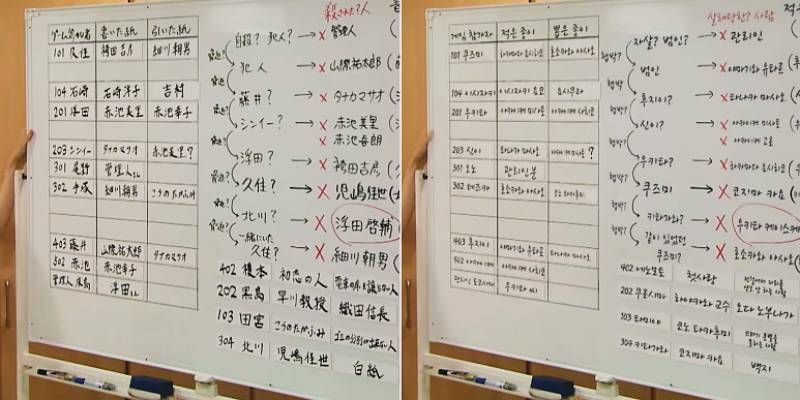 殺された?人
ゲーム参加者 書いた紙 引いた紙
101 久住 袴田吉彦 細川朝男
104 石崎 石崎洋子 吉村
201 浮田 赤池美里 赤池幸子
203 シンイー タナカマサオ 赤池美里?
301 尾野 管理人さん
302 手塚 細川朝男 こうのたかふみ
403 藤井 山際祐太郎 タナカマサオ
502 赤池 赤池幸子
管理人 床島 浮田さん
自殺? 犯人? → × 管理人
犯人 → × 山際祐太郎
藤井? → × タナカマサオ
シンイー? → × 赤池美里
× 赤池吾朗
浮田? → × 袴田吉彦
久住? → × 児嶋佳世
北川? → × 浮田啓輔
一緒にいた
久住? → × 細川朝男
402 榎本 初恋の人
202 黒島 早川教授 織田信長
103 田宮 こうのたかふみ
304 北川 児嶋佳世 白紙
살해당한? 사람
게임 참가자 적은 종이 뽑은 종이
101 쿠즈미 하카마다 요시히코 호소카와 아사오
104 이시자키 이시자키 요코 요시무라
201 우키타 아카이케 미사토 아카이케 사치코
203 신이 타나카 마사오 아카이케 미사토?
301 오노 관리인분
302 테즈카 호소카와 아사오 코노 타카후미
403 후지이 야마기와 유타로 타나카 마사오
502 아카이케 아카이케 사치코
관리인 토코시마 우키타 씨
자살? 범인? → × 관리인
협박?
범인 → × 야마기와 유타로
협박?
후지이? → × 타나카 마사오
협박?
신이? → × 아카이케 미사토
× 아카이케 고로
협박?
우키타? → × 하카마다 요시히코
협박?
쿠즈미 → × 코지마 카요
협박?
키타가와? → × 우키타 케이스케
협박?
같이 있었던
쿠즈미? → × 호소카와 아사오
402 에노모토 첫사랑
202 쿠로시마 하야카와 교수 오다 노부나가
103 타미야 코노 타카후미
304 키타가와 코지마 카요 백지